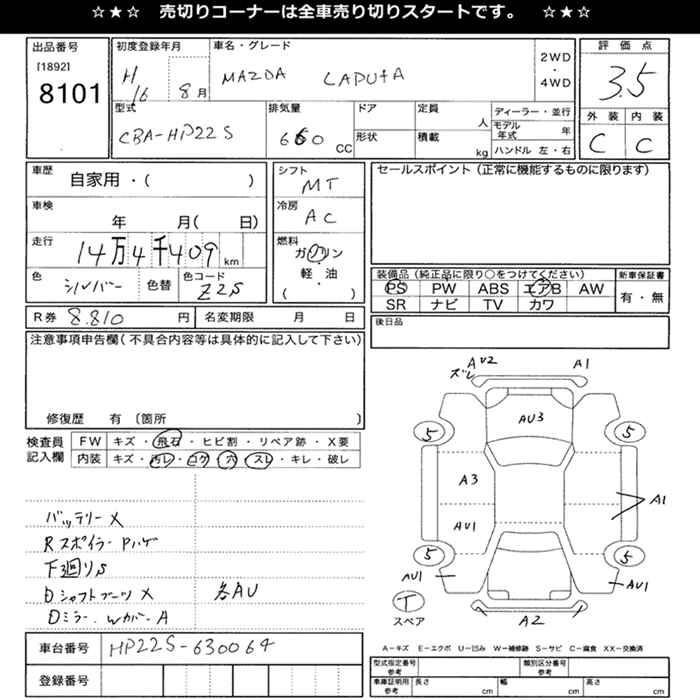 ☆★☆ 売切りコーナーは全車売り切りスタートです。 ☆★☆
出品番号
[1892]
8101
初度登録年月
H16 8月
車名・グレード
MAZDA LAPUTA
2WD
・
4WD
評価点
3.5
型式
CBA-HP22S
排気量
660 CC
ドア
形状
定員 人
積載 kg
ディーラー・並行
モデル年式 年
ハンドル 左・右
外装 内装
C C
車歴
自家用・( )
シフト
MT
セールスポイント(正常に機能するものに限ります)
車検
年 月( 日)
冷房
AC
走行
14万4千409 km
燃料
ガソリン
・
軽・油
( )
色
シルバー
色替
色コード
Z2S
装備品(純正品に限り○をつけてください)
PS PW ABS エアB AW
SR ナビ TV カワ
新車保証書
有・無
R券 8.810 円
名変期限 月 日
後日品
注意事項申告欄(不具合内容等は具体的に記入して下さい)
修復歴 有 〔箇所 〕
検査員
記入欄
FW キズ・飛石・ヒビ割・リペア跡・X要
内装 キズ・汚レ・コゲ・穴・スレ・キレ・破レ
バッテリーX
Rスポイラー P ハゲ
下廻りS
DシャフトブーツX 各AU
Dミラー.Wカバー A
車台番号 HP22S-630064
登録番号
AU2
ズレ
A1
AU3
5
5
A3
AU1
A1
5
5
AU1
AU1
T
スペア
A2
A=キズ E=エクボ U=凹み W=補修跡 S=サビ C=腐食 XX=交換済
型式指定番号
参考
類別区分番号
参考
車庫証明用
参考
長さ cm
幅 cm
高さ cm